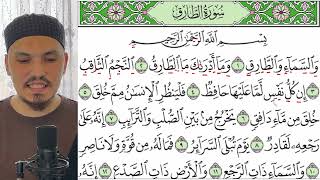 سُورَةُ الطَّارِقِ
بِسْمِ اللَّهِ الرَّحْمَٰنِ الرَّحِيمِ
وَالسَّمَاءِ وَالطَّارِقِ ١ وَمَا أَدْرَاكَ مَا الطَّارِقُ ٢ النَّجْمُ الثَّاقِبُ
٣ إِن كُلُّ نَفْسٍ لَّمَّا عَلَيْهَا حَافِظٌ ٤ فَلْيَنظُرِ الْإِنسَانُ مِمَّ خُلِقَ
٥ خُلِقَ مِن مَّاءٍ دَافِقٍ ٦ يَخْرُجُ مِن بَيْنِ الصُّلْبِ وَالتَّرَائِبِ ٧ إِنَّهُ عَلَىٰ
رَجْعِهِ لَقَادِرٌ ٨ يَوْمَ تُبْلَى السَّرَائِرُ ٩ فَمَا لَهُ مِن قُوَّةٍ وَلَا نَاصِرٍ
١٠ وَالسَّمَاءِ ذَاتِ الرَّجْعِ ١١ وَالْأَرْضِ ذَاتِ الصَّدْعِ ١٢ إِنَّهُ